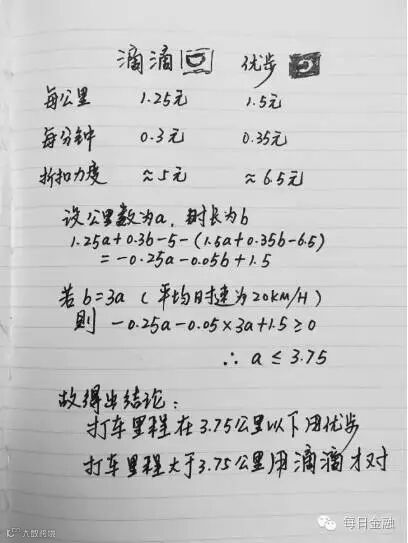 滴滴 优步
每公里 1.25元 1.5元
每分钟 0.3元 0.35元
折扣力度 ≈5元 ≈6.5元
设公里数为a，时长为b
1.25a+0.3b-5-(1.5a+0.35b-6.5)
=-0.25a-0.05b+1.5
若b=3a（平均时速为20KM/H）
则 -0.25a-0.05×3a+1.5≥0
∴ a≤3.75
故得出结论：
打车里程在3.75公里以下用优步
打车里程大于3.75公里用滴滴才对
大数跨境
每日金融